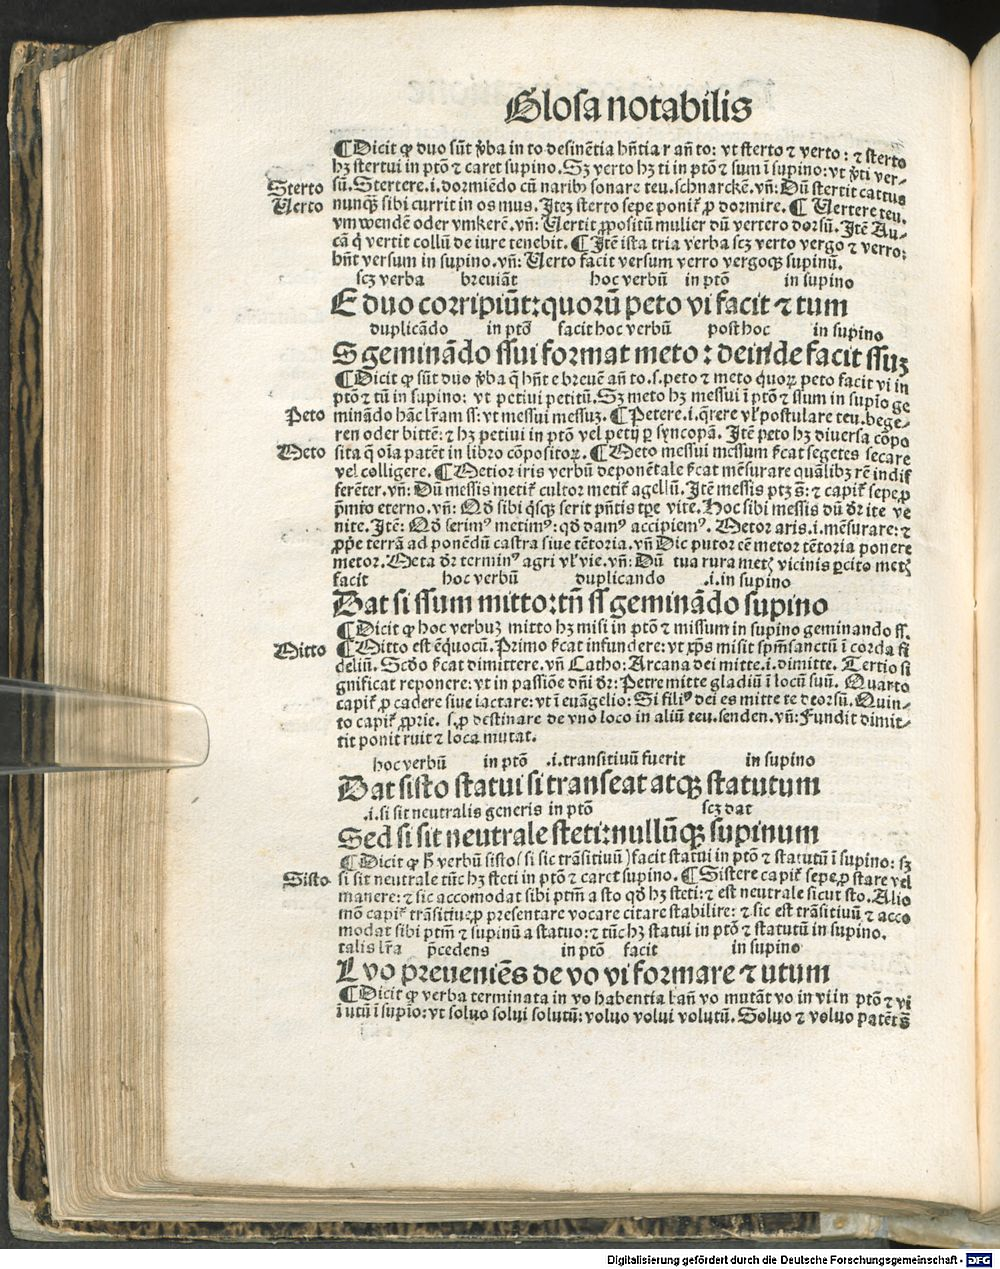 Glosa notabilis
¶Dicit ꝙ duo sũt ꝟba in to desinẽtia hñtia r añ to: vt sterto ⁊ verto: ⁊ sterto
hꝫ stertui in ptõ ⁊ caret supino. Sꝫ verto hꝫ ti in ptõ ⁊ sum ĩ supino: vt ꝟti ver-
Sterto
sũ. Stertere .i. dormiẽdo cũ narib⁹ sonare teu. schnarckẽ. vñ: Dũ stertit cattus
Uerto
nunqꝫ sibi currit in os mus. Iteꝫ sterto sepe poniť ꝓ dormire. ¶ Uertere teu.
vmwendẽ oder vmkerẽ. vñ: Uertit ꝓpositũ mulier dũ vertero dorsũ. Itẽ Au-
cã q̃ vertit collũ de iure tenebit. ¶ Itẽ ista tria verba scꝫ verto vergo ⁊ verro:
hñt versum in supino. vñ: Uerto facit versum verro vergoqꝫ supinũ.
scꝫ verba breuiãt hoc verbũ in ptõ in supino
E duo corripiũt: quorũ peto vi facit ⁊ tum
duplicãdo in ptõ facit hoc verbũ post hoc in supino
S geminãdo ssui format meto: deinde facit ssuꝫ
¶Dicit ꝙ sũt duo ꝟba q̃ hñt e breuẽ añ to .s. peto ⁊ meto quoꝝ peto facit vi in
ptõ ⁊ tũ in supino: vt petiui petitũ. Sꝫ meto hꝫ messui ĩ ptõ ⁊ ssum in supĩo ge
Peto
minãdo hãc lr̃am ss: vt messui messuꝫ. ¶ Petere .i. q̃rere vl̃ postulare teu. bege-
ren oder bittẽ: ⁊ hꝫ petiui in ptõ vel petij ꝑ syncopã. Itẽ peto hꝫ diuersa cõpo
Meto
sita q̃ oĩa patẽt in libro cõpositoꝝ. ¶ Meto messui messum ſ̃cat segetes secare
vel colligere. ¶ Metior iris verbũ deponẽtale ſ̃cat mẽsurare quãlibꝫ rẽ indif
ferẽter. vñ: Dũ messis metiť cultor metiť agellũ. Itẽ messis ptꝫ s̃: ⁊ capiť sepe ꝓ
p̃mio eterno. vñ: Qd̃ sibi q̃sqꝫ serit pñtis tꝑe vite. Hoc sibi messis dũ dr̃ ite ve
nite. Itẽ: Qd̃ serim⁹ metim⁹: qd̃ dam⁹ accipiem⁹. Metor aris .i. mẽsurare: ⁊
ꝓp̃e terrã ad ponẽdũ castra siue tẽtoria. vñ Dic putor cẽ metor tẽtoria ponere
metor. Meta dr̃ termin⁹ agri vl̃ vie. vñ: Dũ tua rura metꝫ vicinis ꝑcito metꝫ
facit hoc verbũ duplicando .i. in supino
Dat si ssum mitto: tñ ss geminãdo supino
¶Dicit ꝙ hoc verbuꝫ mitto hꝫ misi in ptõ ⁊ missum in supino geminando ss.
Mitto
¶Mitto est ẽquocũ. Primo ſ̃cat infundere: vt xp̃s misit spm̃sanctũ ĩ corda fi
deliũ. Scd̃o ſ̃cat dimittere. vñ Catho: Arcana dei mitte .i. dimitte. Tertio si
gnificat reponere: vt in passiõe dñi dr̃: Petre mitte gladiũ ĩ locũ suũ. Quarto
capiť ꝓ cadere siue iactare: vt ĩ euãgelio: Si fili⁹ dei es mitte te deorsũ. Quin-
to capiť ꝓprie .s. ꝓ destinare de vno loco in aliũ teu. senden. vñ: Fundit dimit-
tit ponit ruit ⁊ loca mutat.
hoc verbũ in ptõ .i. transitiuũ fuerit in supino
Dat sisto statui si transeat atqꝫ statutum
.i. si sit neutralis generis in ptõ scꝫ dat
Sed si sit neutrale steti: nullũqꝫ supinum
¶Dicit ꝙ h̃ verbũ sisto (si sic trãsitiuũ) facit statui in ptõ ⁊ statutũ ĩ supino: sꝫ
Sisto
si sit neutrale tũc hꝫ steti in ptõ ⁊ caret supino. ¶ Sistere capiť sepe ꝓ stare vel
manere: ⁊ sic accomodat sibi ptm̃ a sto qd̃ hꝫ steti: ⁊ est neutrale sicut sto. Alio
mõ capiť trãsitiue ꝓ presentare vocare citare stabilire: ⁊ sic est trãsitiuũ ⁊ acco
modat sibi ptm̃ ⁊ supinũ a statuo: ⁊ tũc hꝫ statui in ptõ ⁊ statutũ in supino.
talis lr̃a p̃cedens in ptõ facit in supino
L vo preueniẽs de vo vi formare ⁊ utum
¶Dicit ꝙ verba terminata in vo habentia l añ vo mutãt vo in vi in ptõ ⁊ vi
ĩ utũ ĩ supĩo: vt soluo solui solutũ: voluo volui volutũ. Soluo ⁊ voluo patẽt s̃
Digitalisierung gefördert durch die Deutsche Forschungsgemeinschaft - DFG